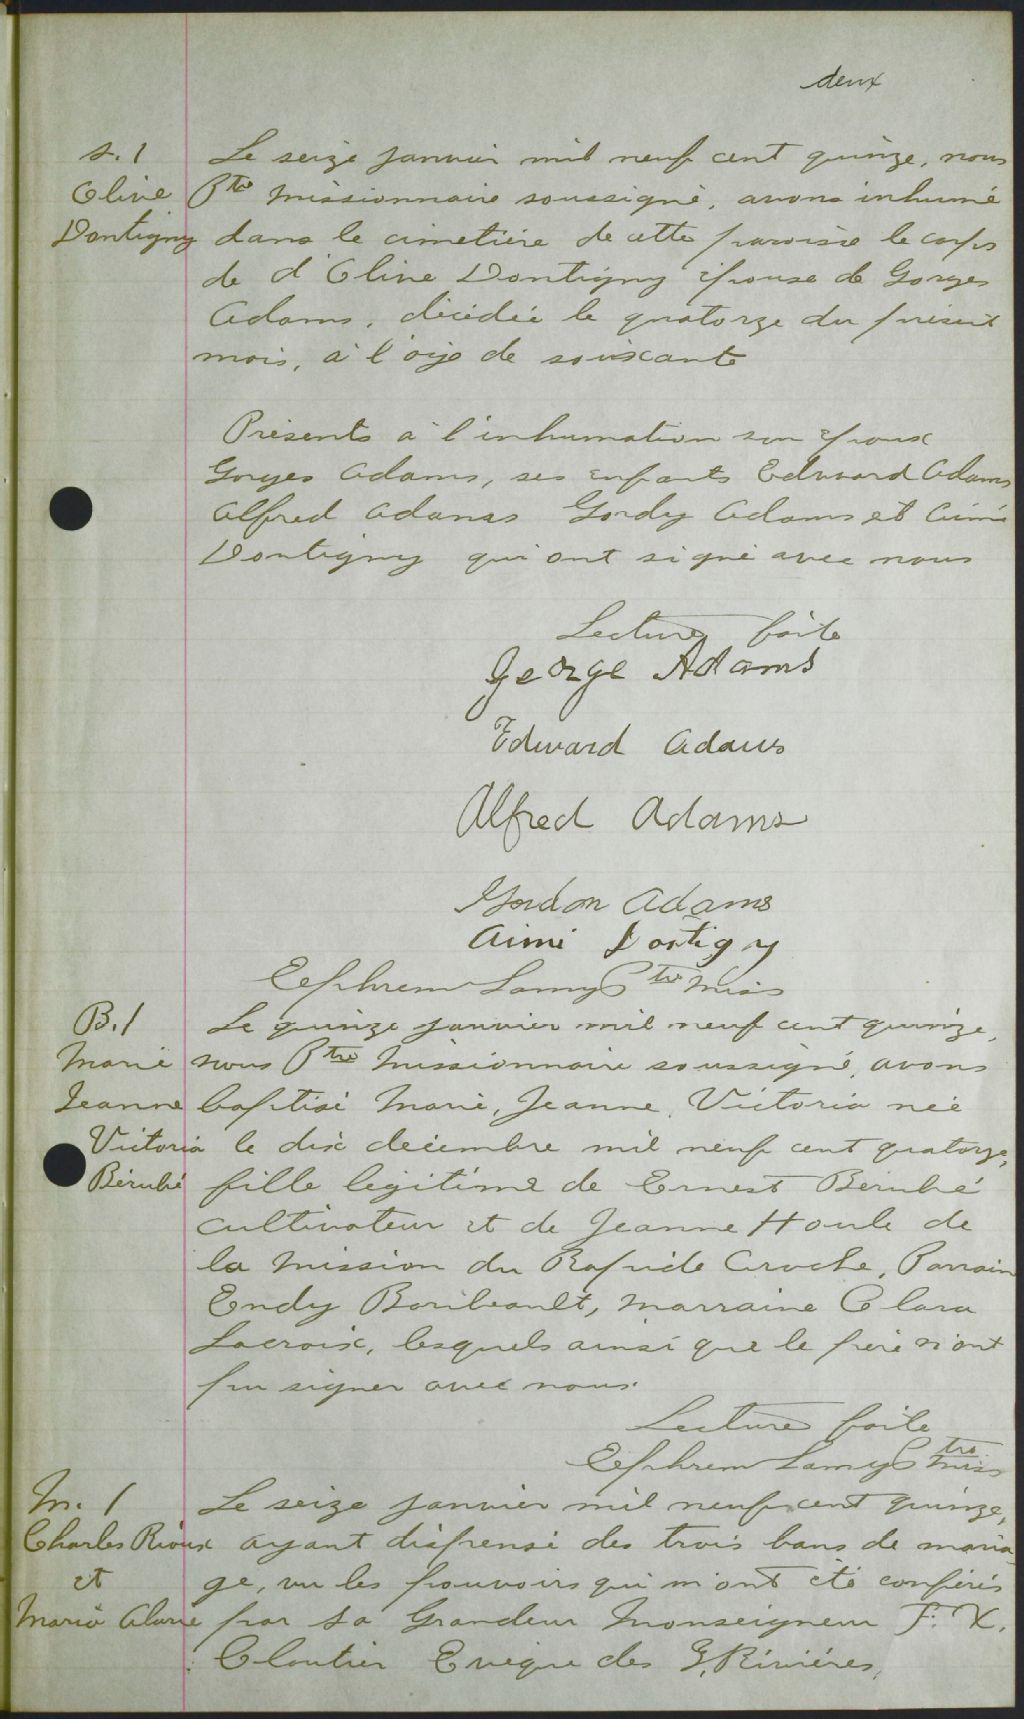 deux
S. 1
Olive
Dontigny
Le seize janvier mil neuf cent quinze, nous
Ptre missionnaire soussigné, avons inhumé
dans le cimetière de cette paroisse le corps
de d'Olive Dontigny épouse de Gorges
Adams, décédée le quatorze du présent
mois, à l'age de soixante
Présents à l'inhumation son époux
Gorges Adams, ses enfants Edward Adams
Alfred Adams Gordy Adams et Aimé
Dontigny qui ont signé avec nous
Lecture faite
George Adams
Edward Adams
Alfred Adams
Gordon Adams
Aimé Dontigny
Eephrem Lamy Ptre Miss
B. 1
Marie
Jeanne
Victoria
Bérubé
Le quinze janvier mil neuf cent quinze,
nous Ptre Missionnaire soussigné, avons
baptisé Marie, Jeanne, Victoria née
le dix décembre mil neuf cent quatorze,
fille légitime de Ernest Bérubé
cultivateur et de Jeanne Houle de
la Mission du Rapide Croche, Parrain
Endy Baribeault, marraine Clara
Lacroix, lesquels ainsi que le père n'ont
pu signer avec nous.
Lecture faite
Eephrem Lamy Ptre miss
M. 1
Charles Rioux
et
Maria Alarie
Le seize janvier mil neuf cent quinze,
ayant dispensé des trois bans de maria-
ge, vu les pouvoirs qui m'ont été conférés
par Sa Grandeur Monseigneur F. X.
Cloutier Evêque des 3. Rivières,